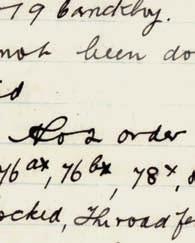 79 Canckby.
not been do
id
Hos order
76 ax, 76 bx, 78 x,
ocked, The road fe